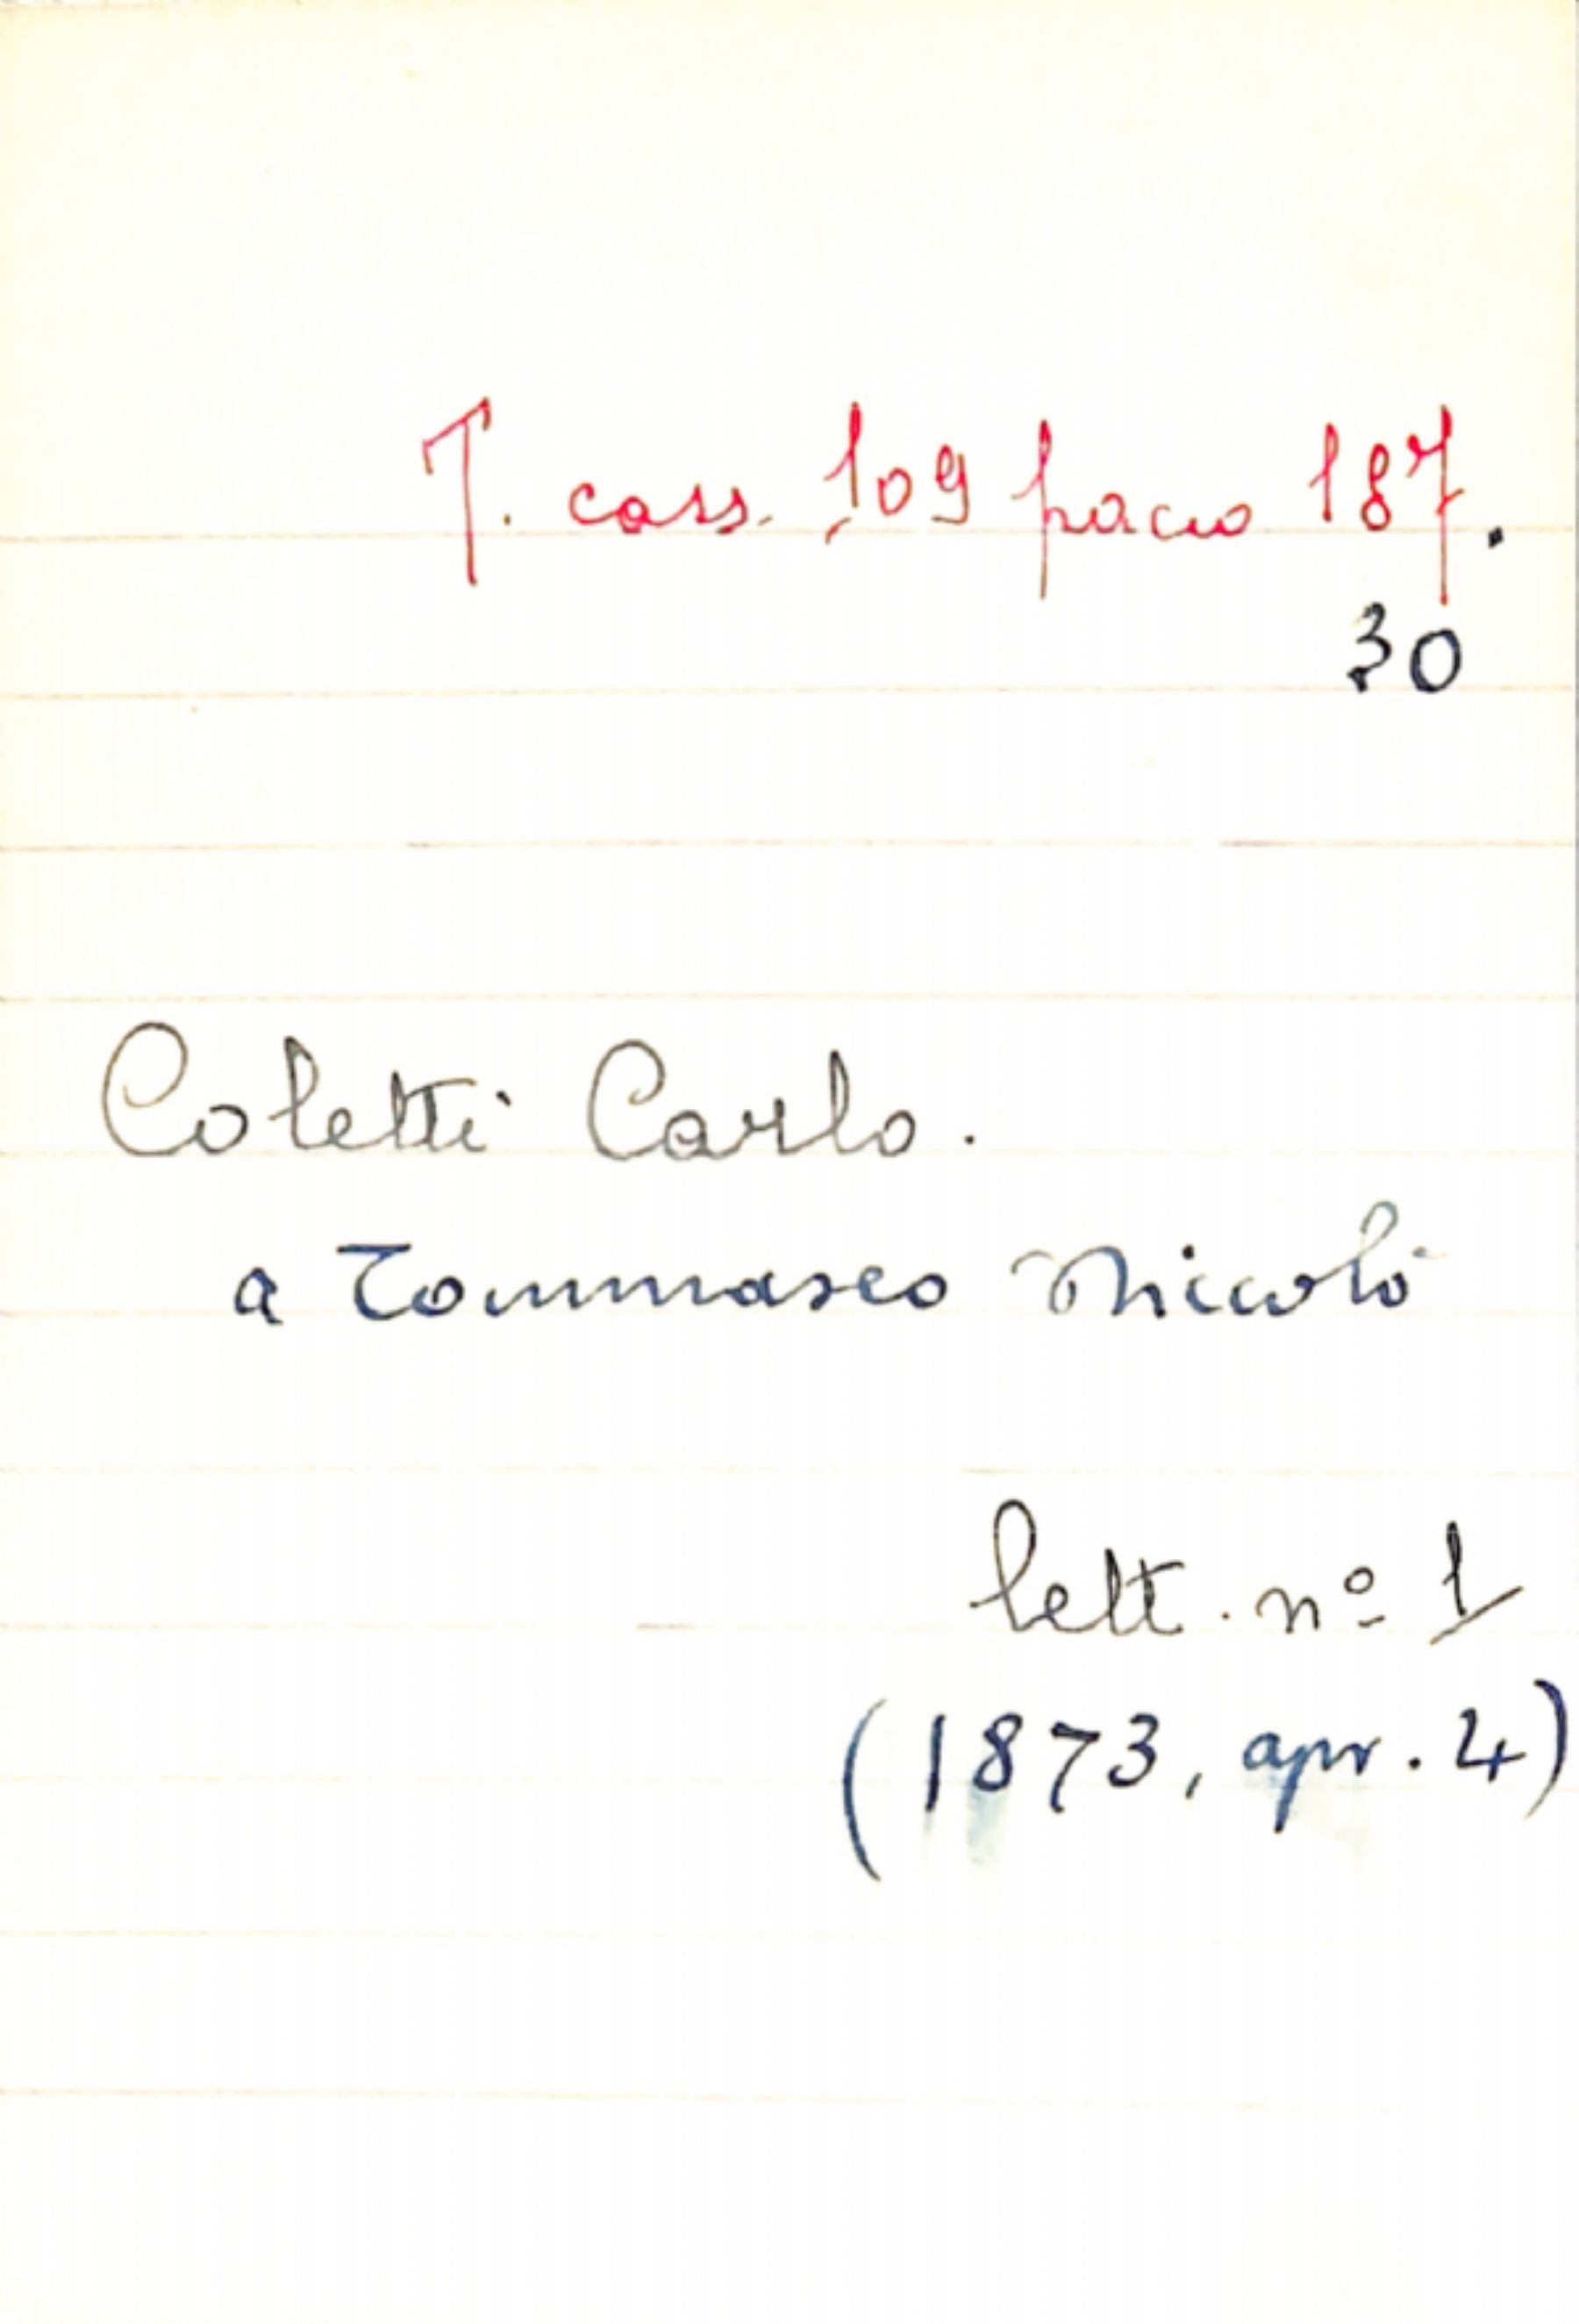 T. cass. 109 pacco 187.
30
Coletti Carlo.
a Tommaseo Nicolò
lett. nº 1
(1873, apr. 4)